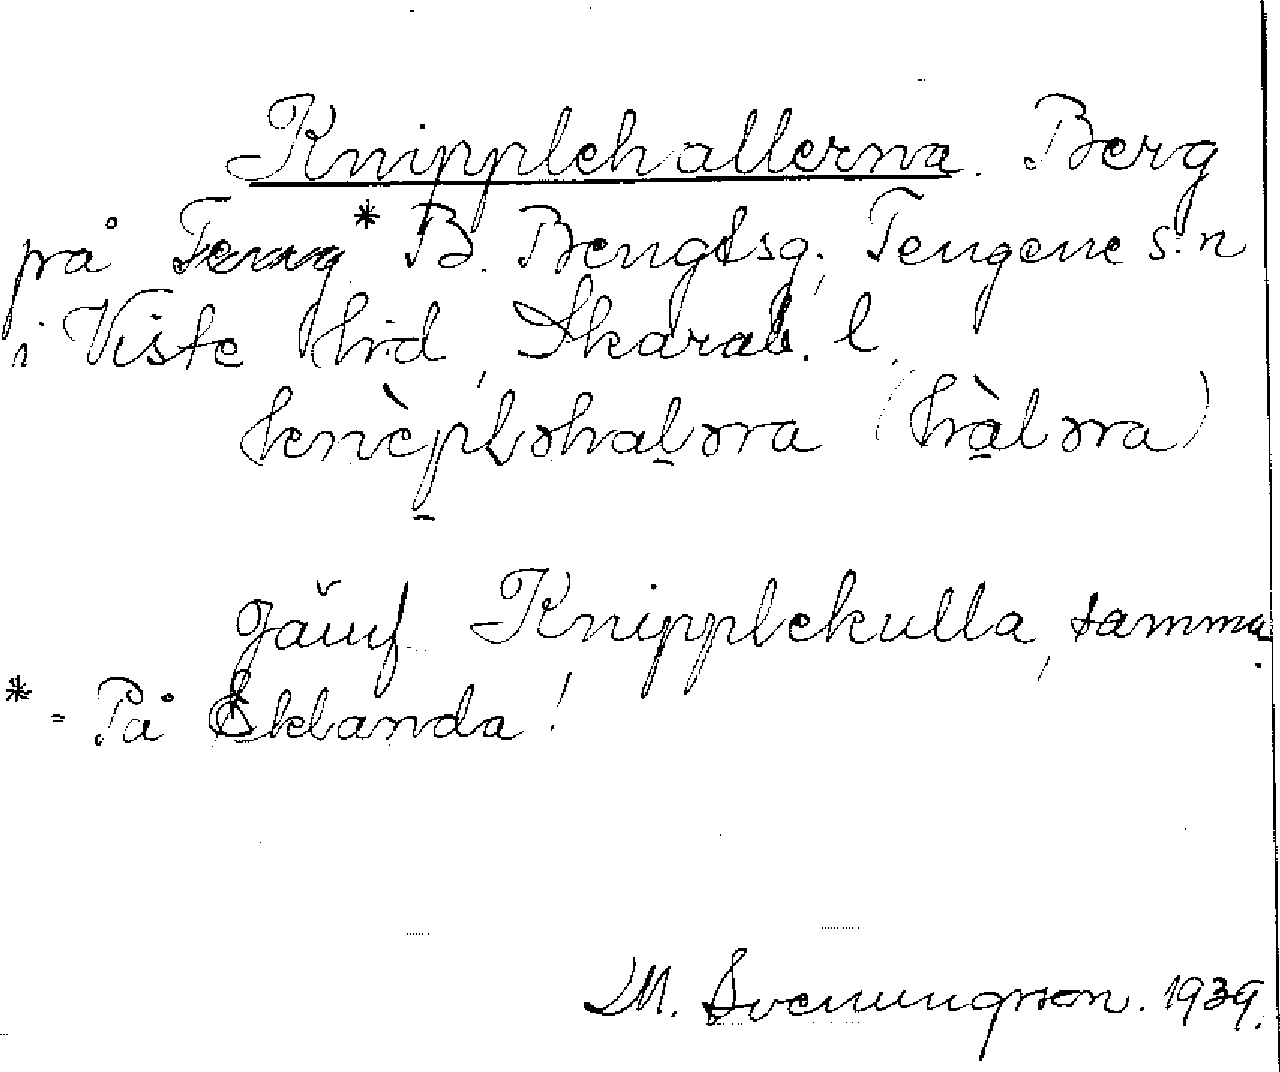 Knipplehallerna. Berg
på * B. Bengtsg., Tengene s:n
i Viste hrd, Skarab. l.
(hàləra)
Jämf Knipplekulla, samma
* = På Eklanda!
M. Svenungsson. 1939.